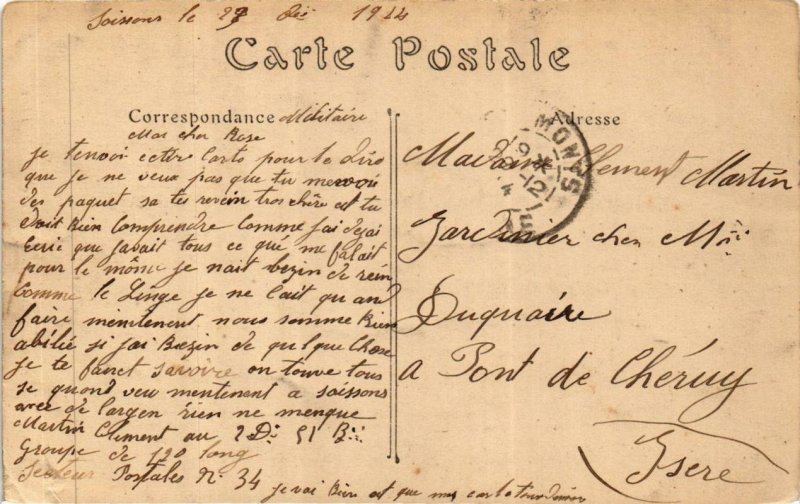 Soissons le 27 Déc 1914
Carte Postale
Correspondance Militaire
Adresse
Ma cher Rose
je tenvoi cette Carto pour te Diro
que je ne veux pas que tu menvoi
des paquet sa te revein tros chère et tu
Doit Bien Comprendre Comme j'ai dejai
Ecrie que javait tous ce qué me falait
pour le môme je nait bezin de rein
Comme le Linge je ne lait qu a
faire mentenent nous somme Bien
abilié si j'ai Bezin de quelque Chose
je te faret savoire on touve tous
se quond veu mentenent a soissons
avec de largen rien ne menque
Martin Clément au 2 D. 51 B
Groupe de 120 long
Secteur Postales N. 34
je vai Bien et que mes carto
Madame Clement Martin
Jardinier chez M
Duquaire
a Pont de Chéruy
Isere
MONTS